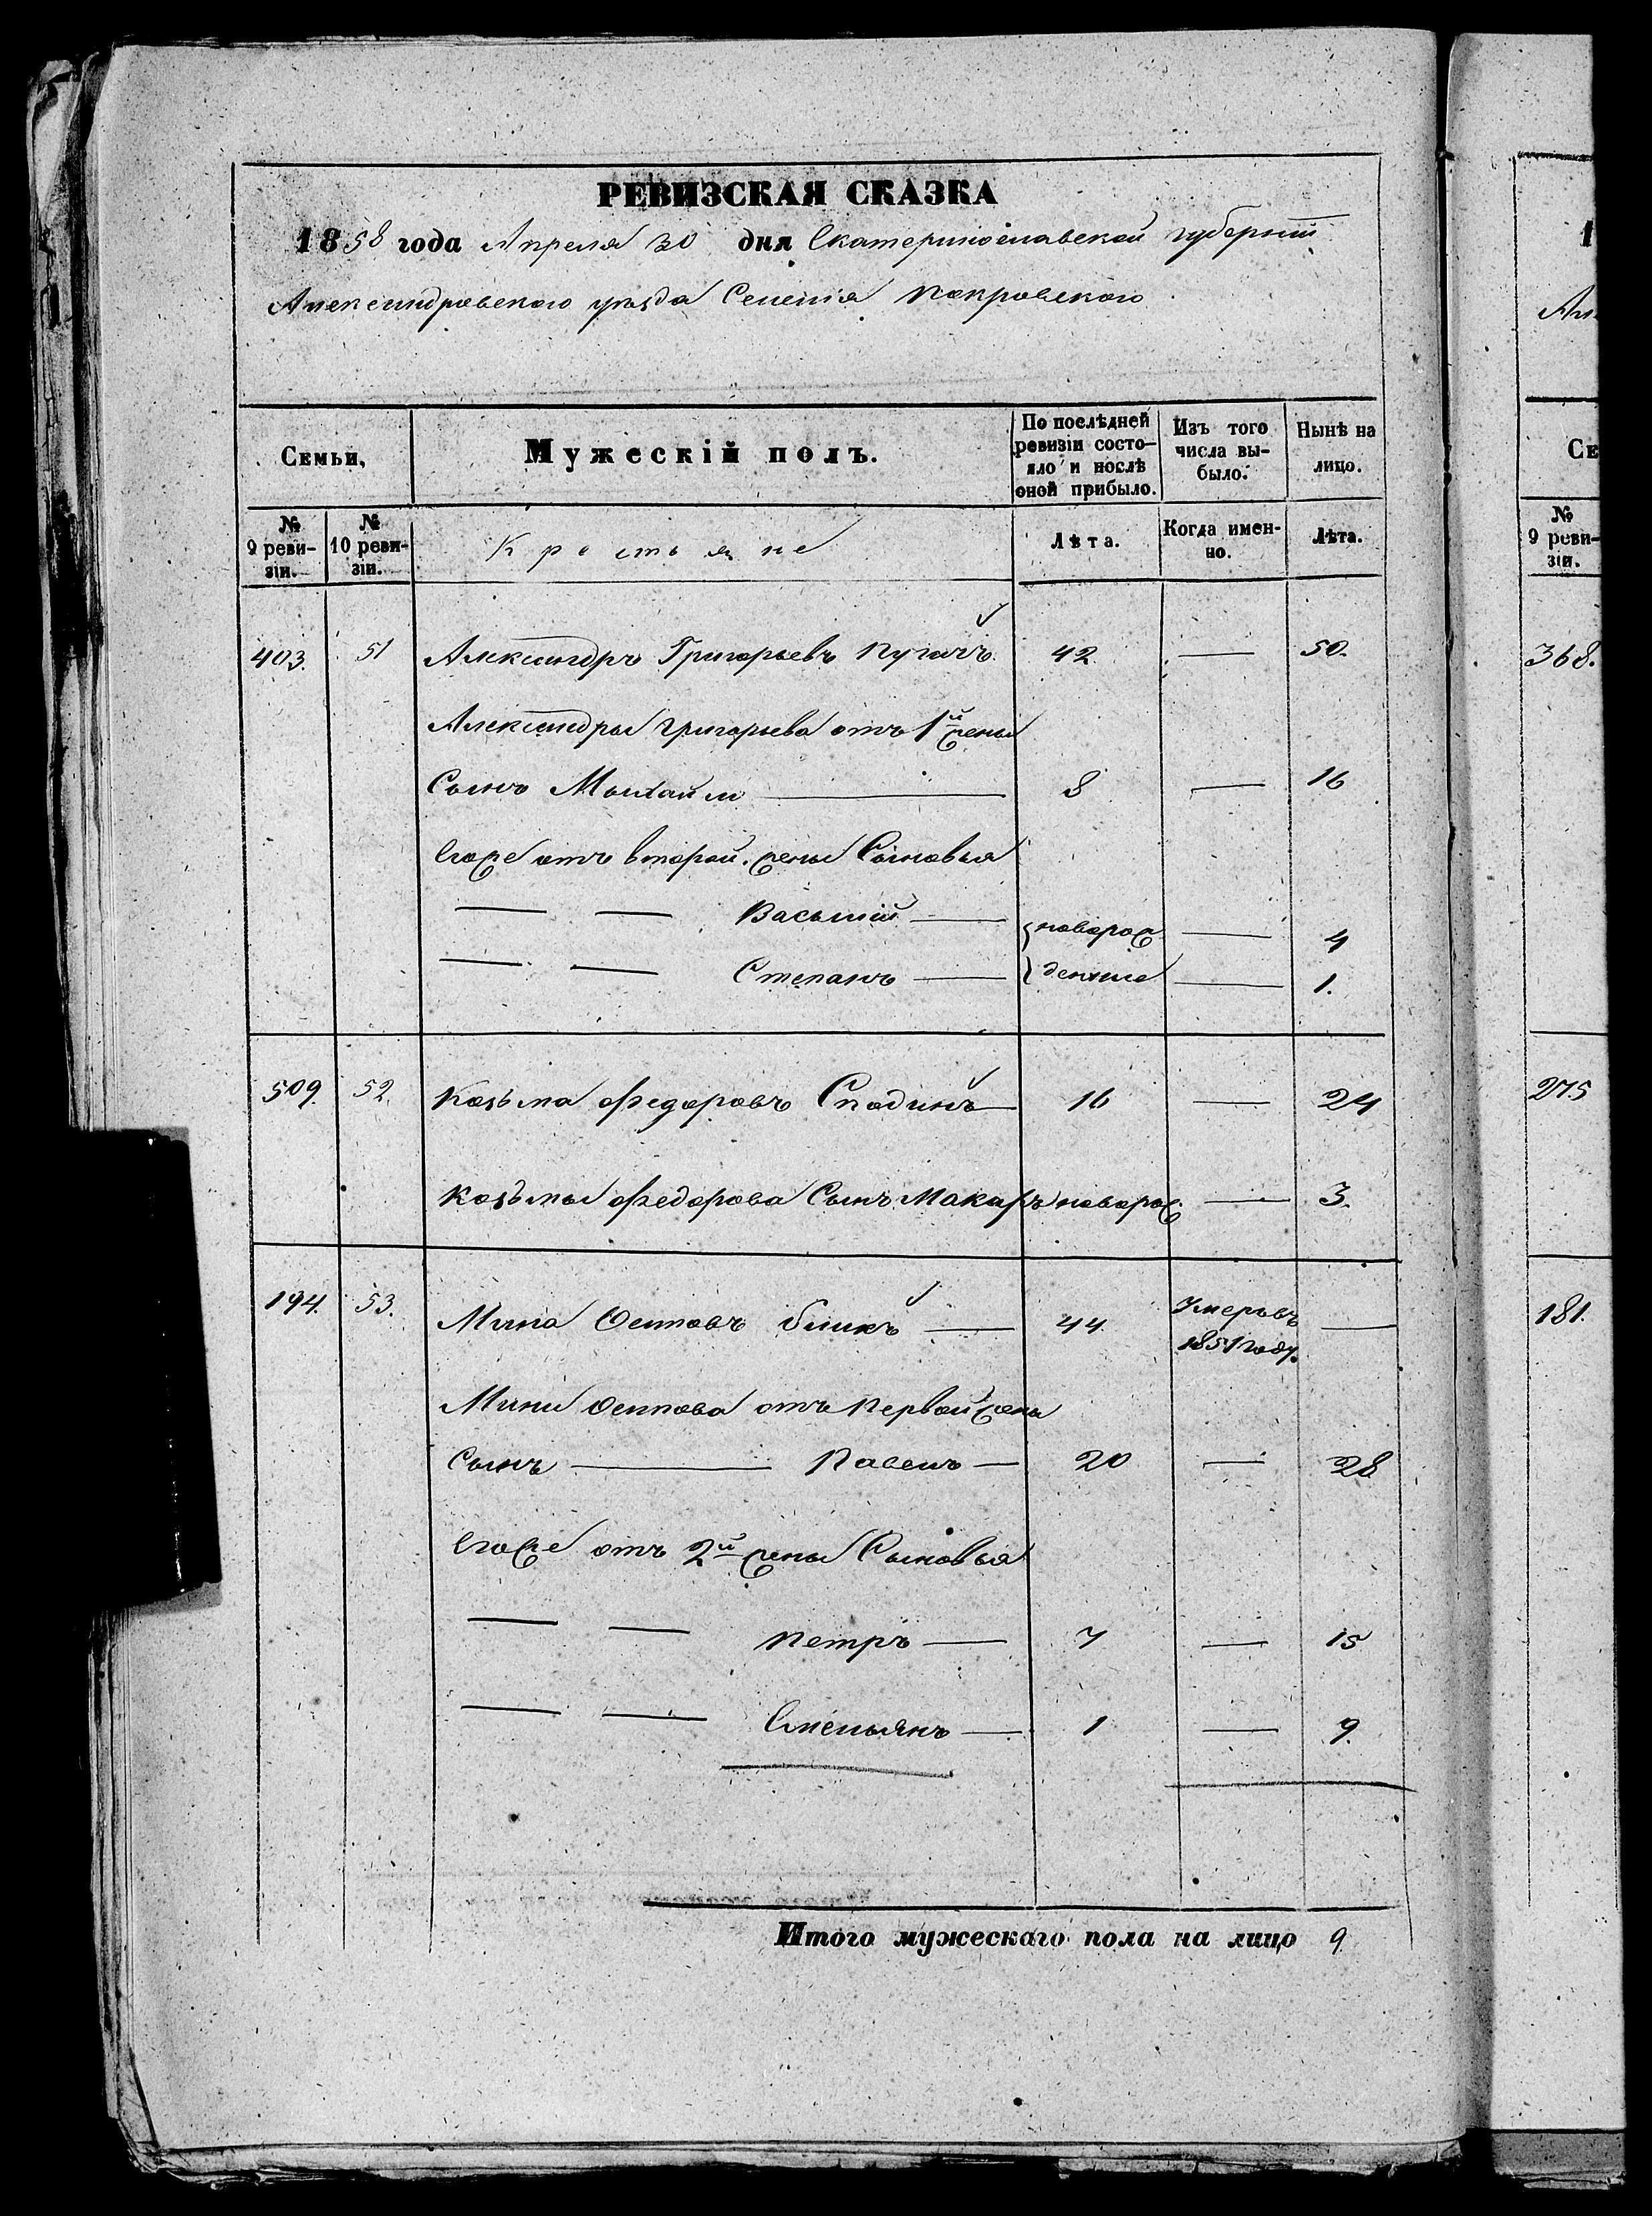 РЕВИЗСКАЯ СКАЗКА
1858 года Апреля 30 дня Екатеринославской губернiи
Александровского уѣзда Селенiя Покровского
Семьи,
Мужескій полъ.
По послѣдней ревизіи состояло и послѣ оной прибыло.
Изъ того числа выбыло.
Нынѣ на лицо.
№ 9 ревизіи.
№ 10 ревизіи.
Крестьяне
Лѣта.
Когда именно.
Лѣта.
403. 51 Александръ Григорьевъ Пугачъ 42 — 50.
Александры Григорьева отъ 1й жены
Сынъ Михаилъ — 8 — 16
Егоже отъ второй жены Сыновья
— — Василій — новорож — 4
— — Степанъ — денные — 1.
509. 52. Козьма Федоровъ Сподинъ — 16 — 24
Козьмы Федорова Сынъ Макаръ новорож. — 3.
194. 53. Мина Осиповъ Бликъ — 44. Умеръ въ 1851 году. —
Мины Осипова отъ первой жены
Сынъ — Павелъ — 20 — 28
Егоже отъ 2й жены Сыновья
— — Петръ — 7 — 15
— — Емельянъ — 1 — 9.
Итого мужескаго пола на лицо 9
1
Ал
Се
№ 9 ревизіи.
368.
275
181.